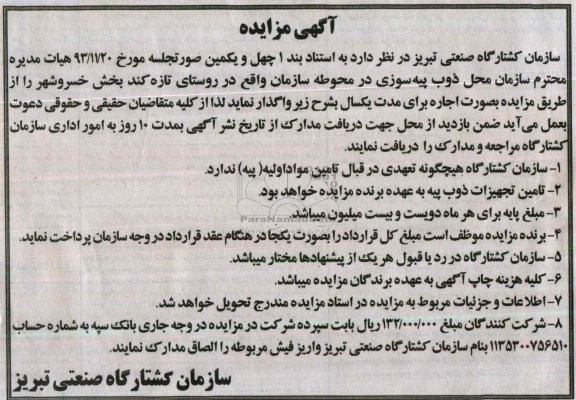 آگهی مزایده
سازمان کشتارگاه صنعتی تبریز در نظر دارد به استناد بند ۱ چهل و یکمین صورتجلسه مورخ ۹۳/۱۱/۲۰ هیات مدیره
محترم سازمان محل ذوب پیه سوزی در محوطه سازمان واقع در روستای تازه کند بخش خسروشهر را از
طریق مزایده بصورت اجاره برای مدت یکسال بشرح زیر واگذار نماید لذا از کلیه متقاضیان حقیقی و حقوقی دعوت
بعمل می آید ضمن بازدید از محل جهت دریافت مدارک از تاریخ نشر آگهی بمدت ۱۰ روز به امور اداری سازمان
کشتارگاه مراجعه و مدارک را دریافت نمایند.
۱- سازمان کشتارگاه هیچگونه تعهدی در قبال تامین مواد اولیه( پیه) ندارد.
۲- تامین تجهیزات ذوب پیه به عهده برنده مزایده خواهد بود.
۳- مبلغ پایه برای هر ماه دویست و بیست میلیون میباشد.
۴- برنده مزایده موظف است مبلغ کل قرارداد را بصورت یکجا در هنگام عقد قرارداد در وجه سازمان پرداخت نماید.
۵- سازمان کشتارگاه در رد یا قبول هر یک از پیشنهادها مختار میباشد.
۶- کلیه هزینه چاپ آگهی به عهده برندگان مزایده میباشد.
۷- اطلاعات و جزئیات مربوط به مزایده در اسناد مزایده مندرج تحویل خواهد شد.
۸- شرکت کنندگان مبلغ ۱۳۲/۰۰۰/۰۰۰ ریال بابت سپرده شرکت در مزایده در وجه جاری بانک سپه به شماره حساب
۱۱۳۵۳۰۰۷۵۶۵۱۰ بنام سازمان کشتارگاه صنعتی تبریز واریز فیش مربوطه را الصاق مدارک نمایند.
سازمان کشتارگاه صنعتی تبریز